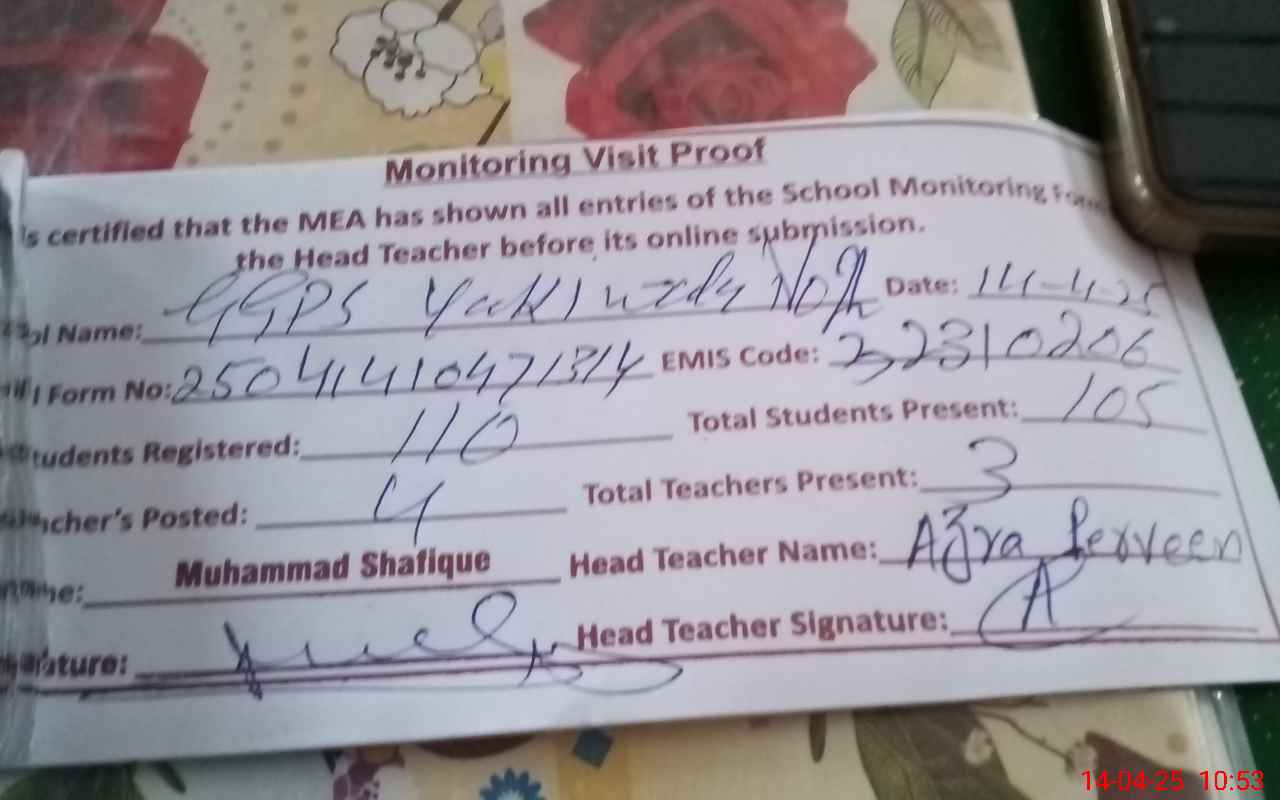 Monitoring Visit Proof
is certified that the MEA has shown all entries of the School Monitoring Form
the Head Teacher before its online submission.
Name: GGPS North Date: 14-4-25
Form No: 25041410471314 EMIS Code: 32310206
Students Registered: 110 Total Students Present: 105
Teacher's Posted: 4 Total Teachers Present: 3
Muhammad Shafique Head Teacher Name: Azra Perveen
Head Teacher Signature: A
14-04-25 10:53